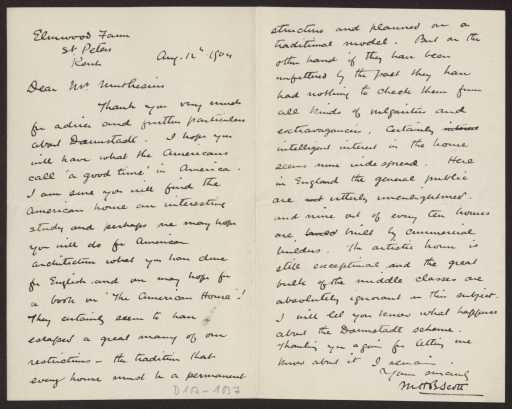 Elmwood Farm
St Peters
Kent
Aug. 12th 1904
Dear Mr Muthesius
Thank you very much
for advice and further particulars
about Darmstadt. I hope you
will have what the Americans
call 'a good time' in America.
I am sure you will find the
American home an interesting
study and perhaps we may hope
you will do for American
architecture what you have done
for English and we may hope for
a book on 'The American House'!
They certainly seem to have
escaped a great many of our
restrictions - the tradition that
every house must be a permanent
D 102-1037
structure and planned on a
traditional model. But on the
other hand if they have been
unfettered by the past they have
had nothing to check them from
all kinds of vulgarities and
extravagancies. Certainly
intelligent interest in the home
seems more widespread. Here
in England the general public
are not utterly unenlightened.
and nine out of every ten houses
are built by commercial
builders. The artistic house is
still exceptional and the great
bulk of the middle classes are
absolutely ignorant in this subject.
I will let you know what happens
about the Darmstadt scheme.
Thanking you again for letting me
know about it I remain
Yours sincerely
M H B Scott